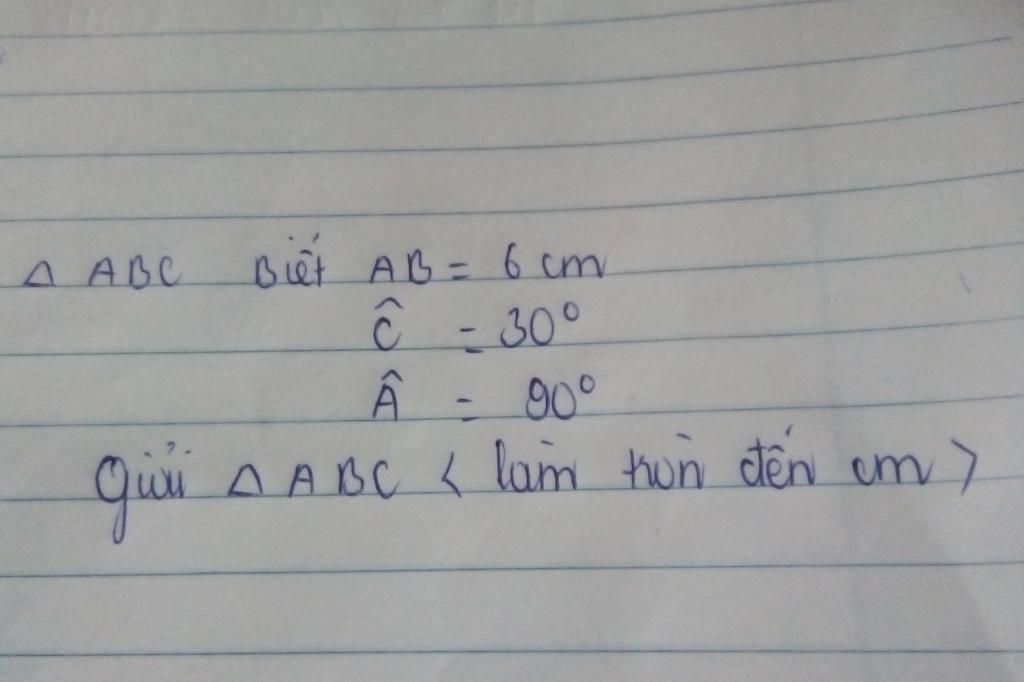 △ ABC Biết AB = 6 cm
Ĉ = 30°
Â = 90°
Giải △ ABC < làm tròn đến cm >